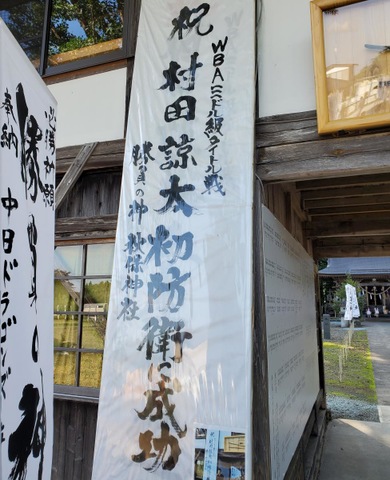 祝
WBAミドル級タイトル戦
村田諒太初防衛に成功
勝負の神 秋保神社
必勝祈願
奉納
勝負の神
中日ドラゴンズ